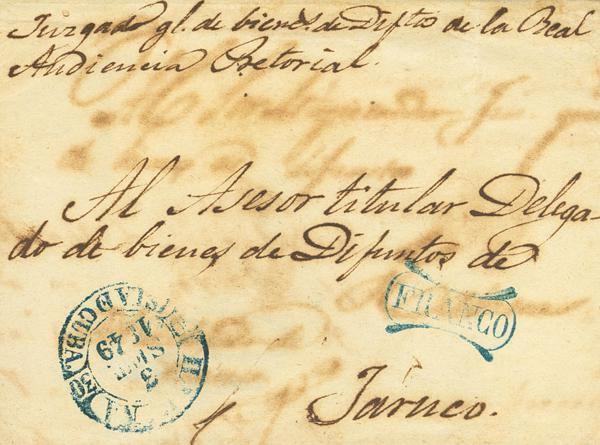 Juzgado gl. de bienes. de Diftos de la Real
Audiencia Pretorial.
Al Asesor titular Delega-
do de bienes de Difuntos de
FRANCO
ISLA D CUBA
1849
Jaruco.